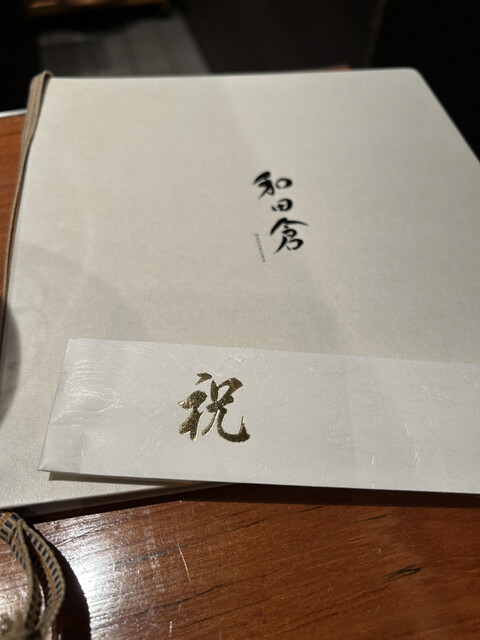 和田倉
祝